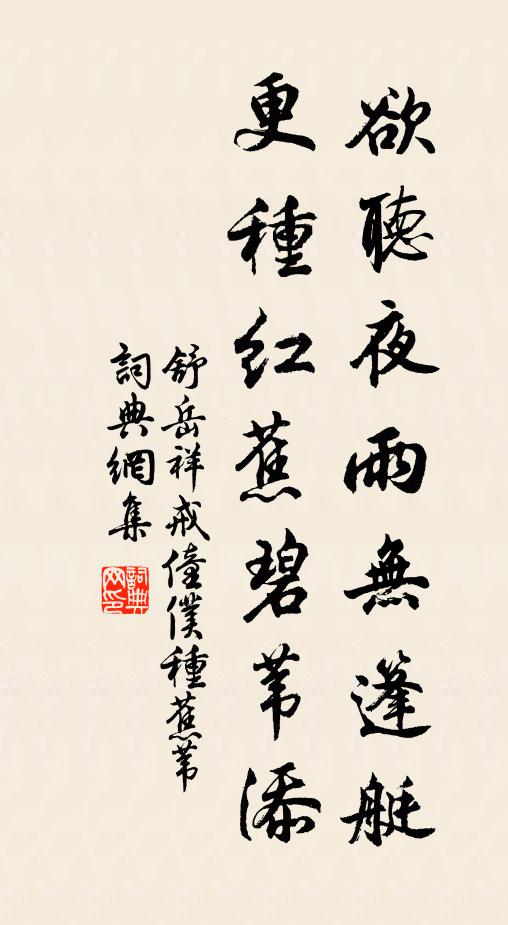 欲聽夜雨無篷艇
更種紅蕉碧葦添
舒岳祥戒僮僕種蕉葦
詞典網集
詞典
网印